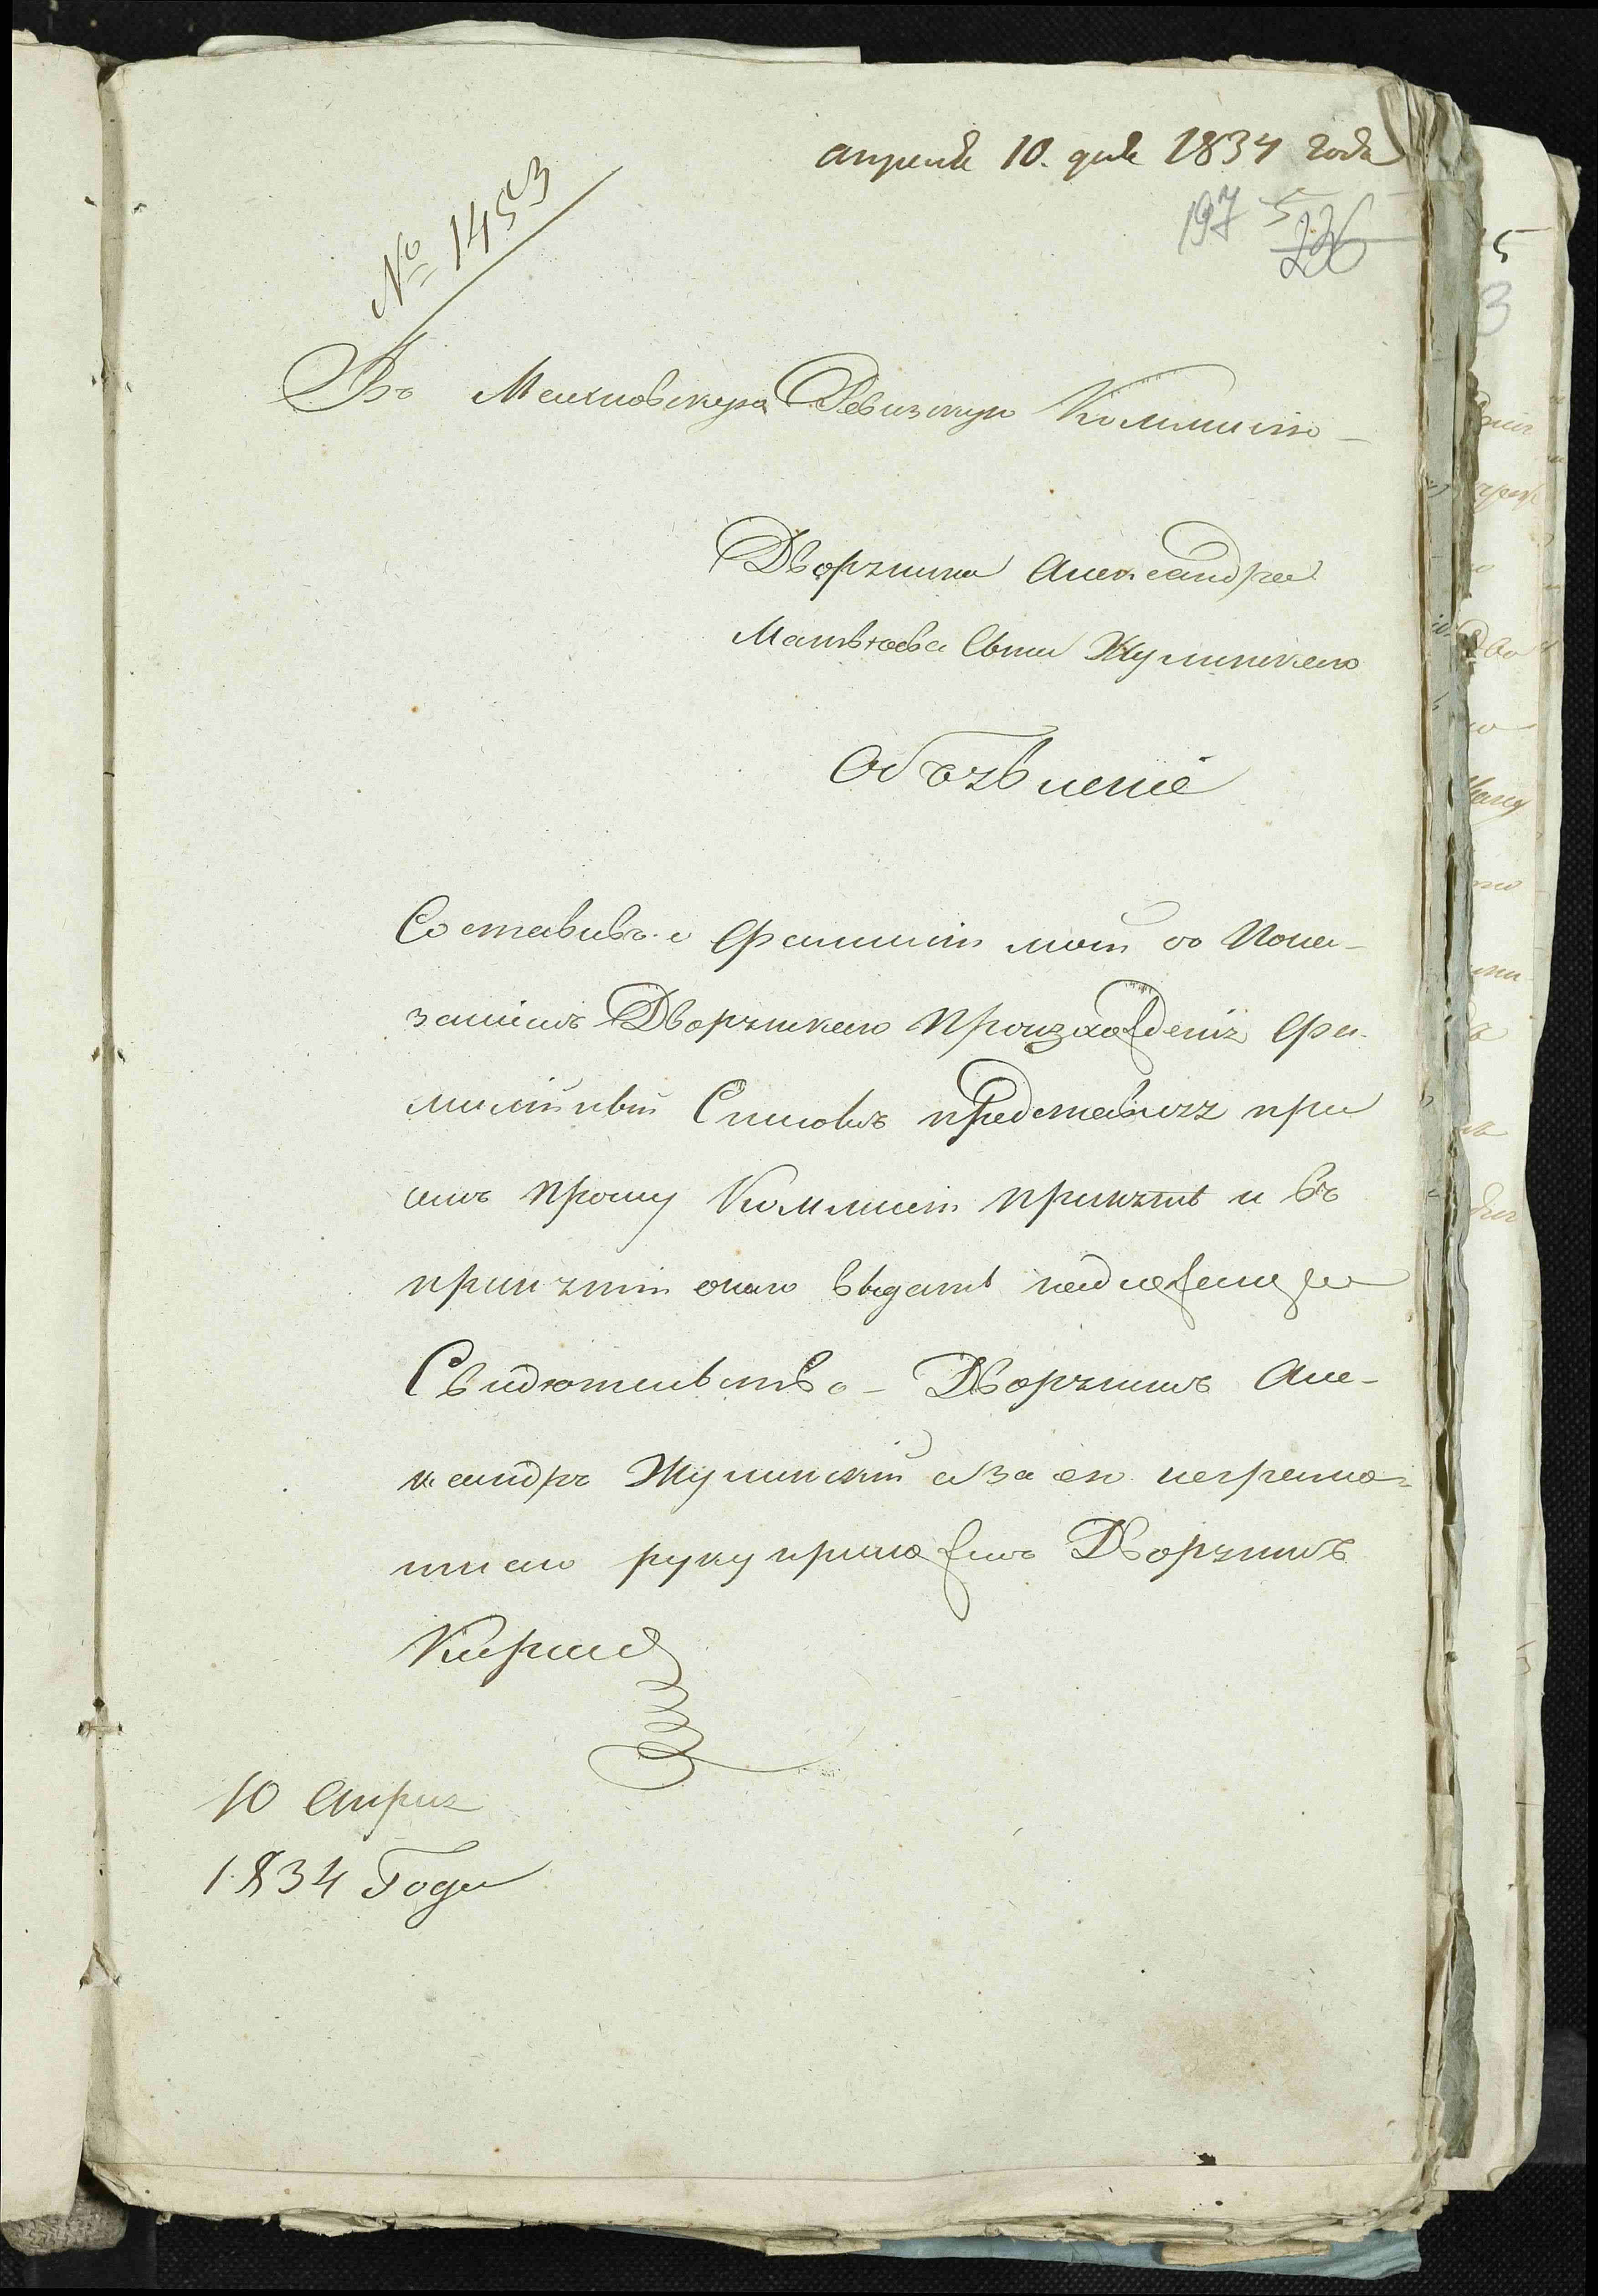 апреля 10. дня 1834 года
№ 1453
197 5
226
Въ Ревизскую Коммисію
Дворянина Александра
Матвѣева Сына Жулинскаго
Объявленіе
Составивъ о Фамиліи моей съ Пока-
заніемъ Дворянскаго Произхожденія Фа-
милійный Списокъ представляя при
семъ прошу Коммисію принять и въ
принятіи онаго выдать надлежащее
Свидѣтельство – Дворянинъ Але-
ксандръ Жулинскій а за его неграмо-
тнаго руку приложилъ Дворянинъ
10 Апрля
1834 Года